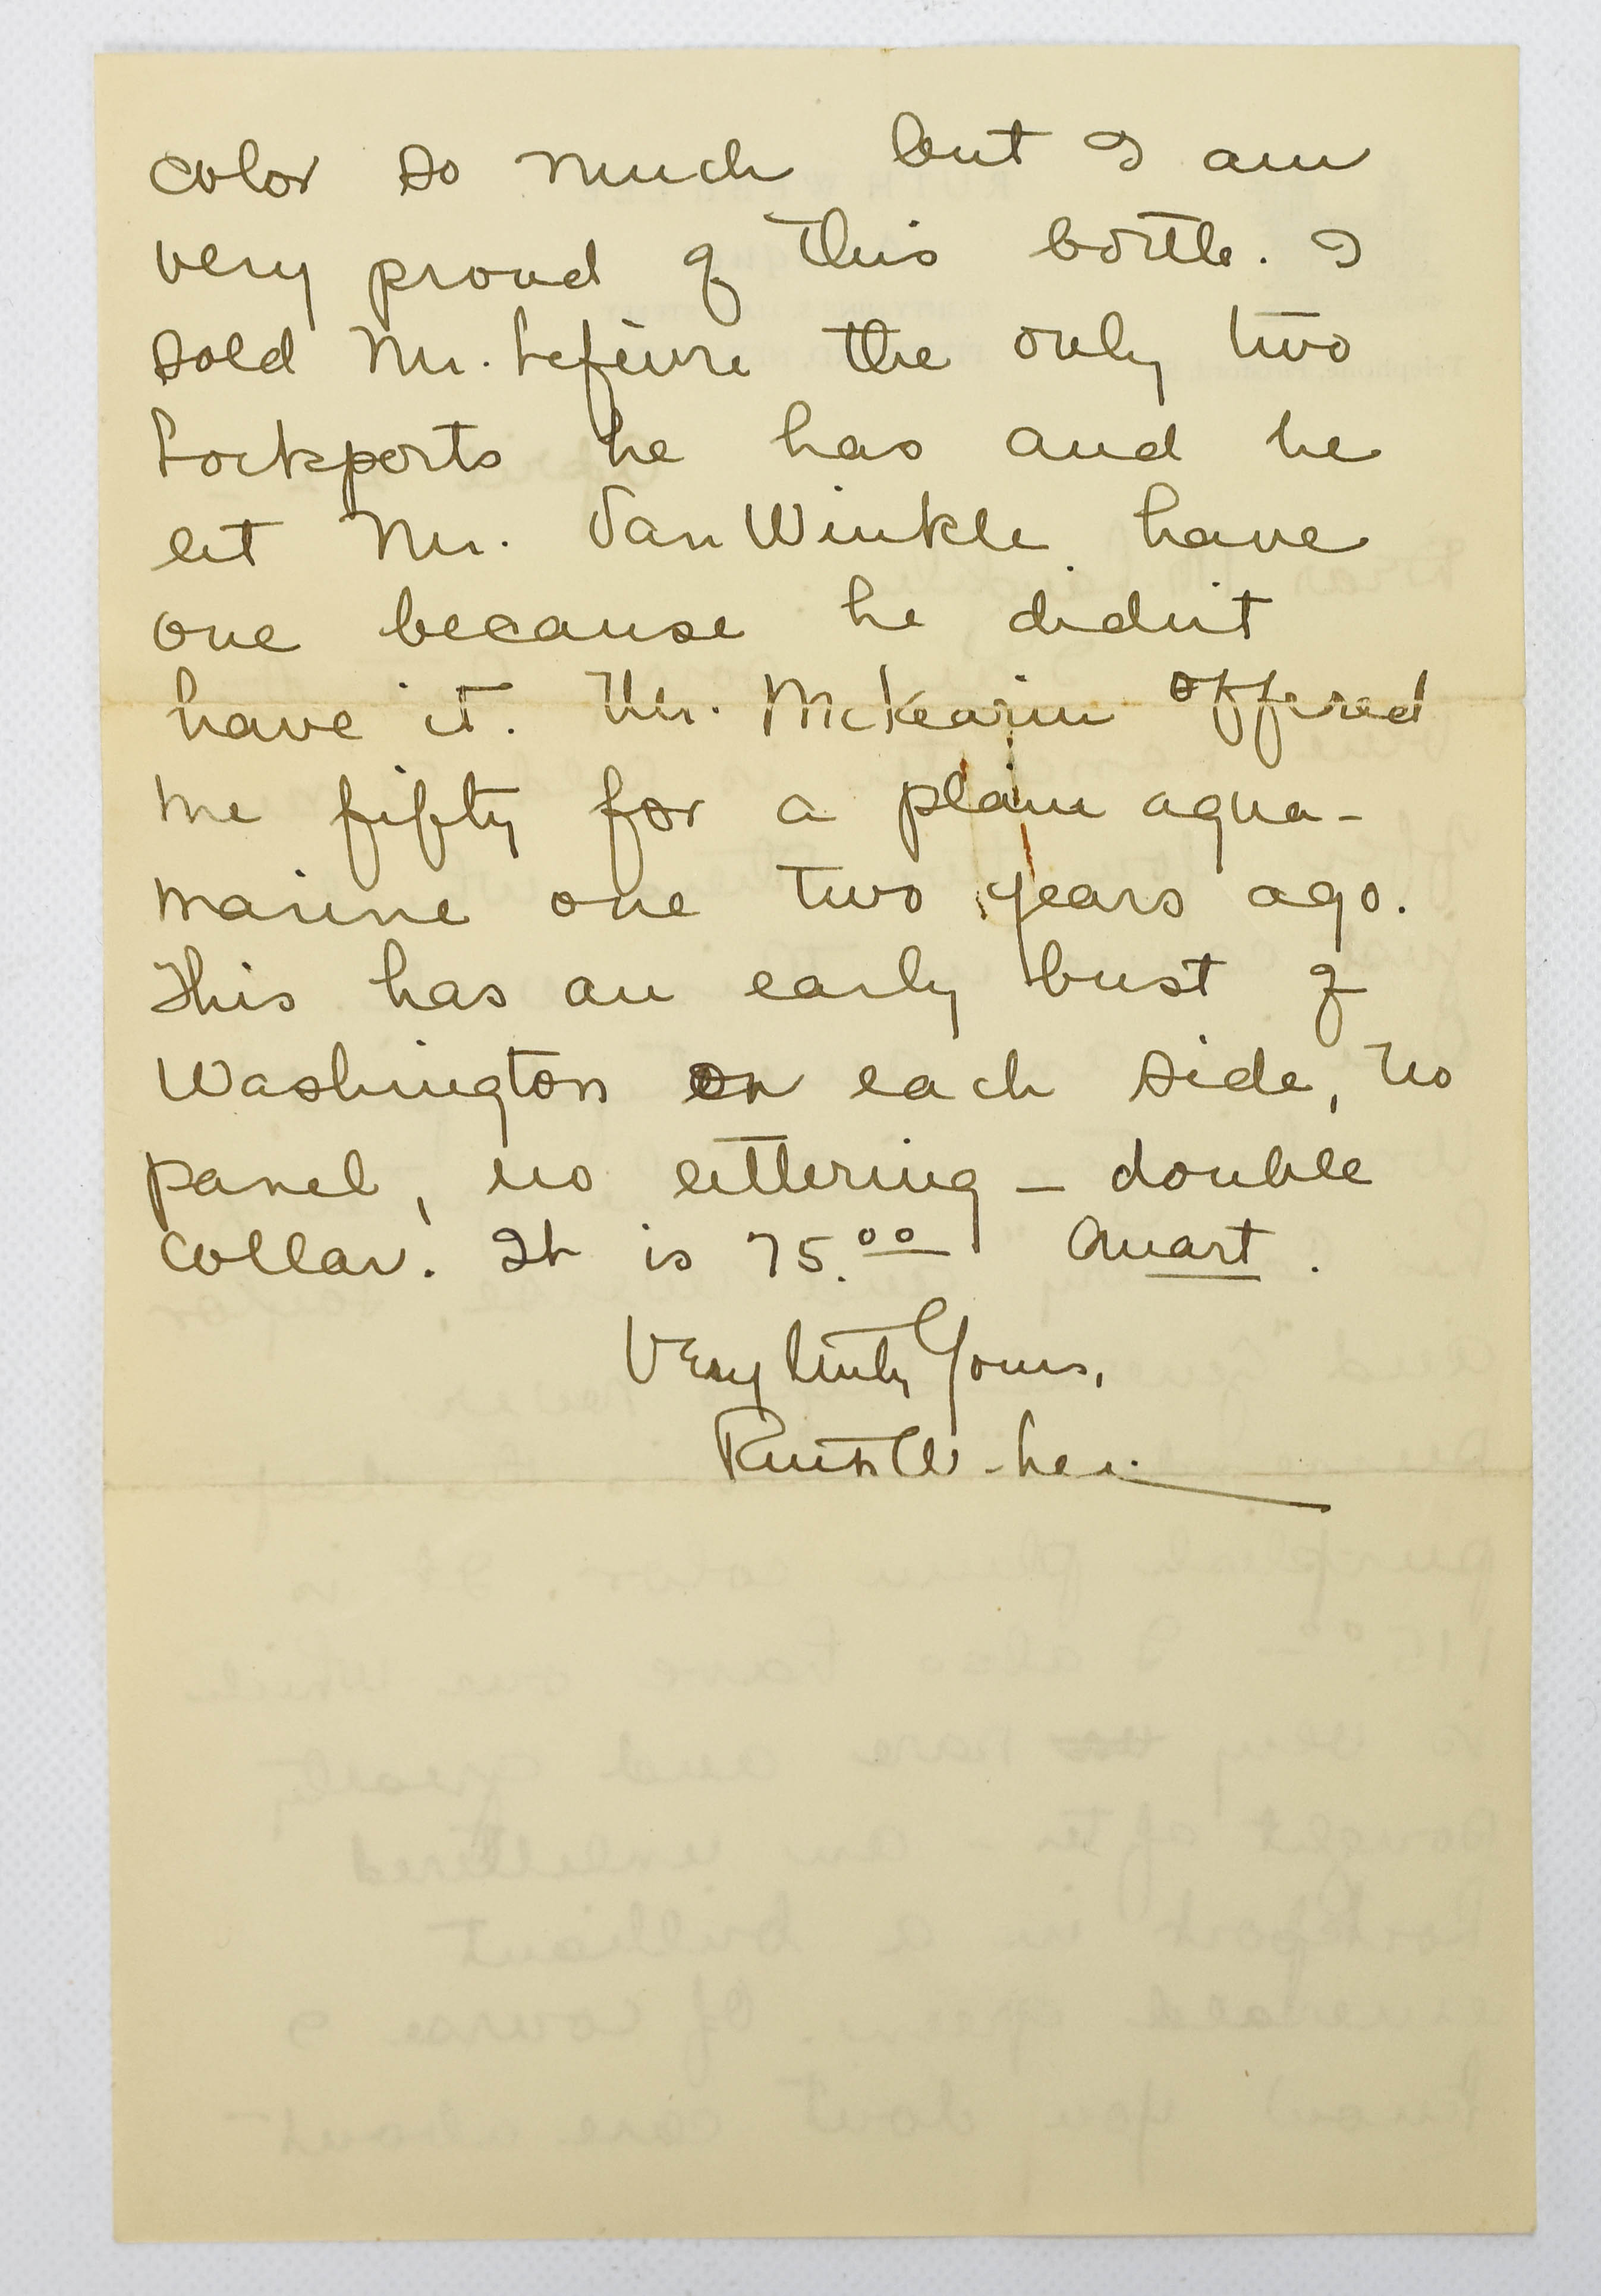 color so much but I am
very proud of this bottle. I
sold Mr. Lefevre the only two
Lockports he has and he
let Mr. Van Winkle have
one because he didn't
have it. Mr. McKearin offered
me fifty for a plain aqua-
marine one two years ago.
This has an early bust of
Washington on each side, no
panel, no lettering – double
collar. It is 75.00 Quart.
Very truly Yours,
Ruth W. Lee.